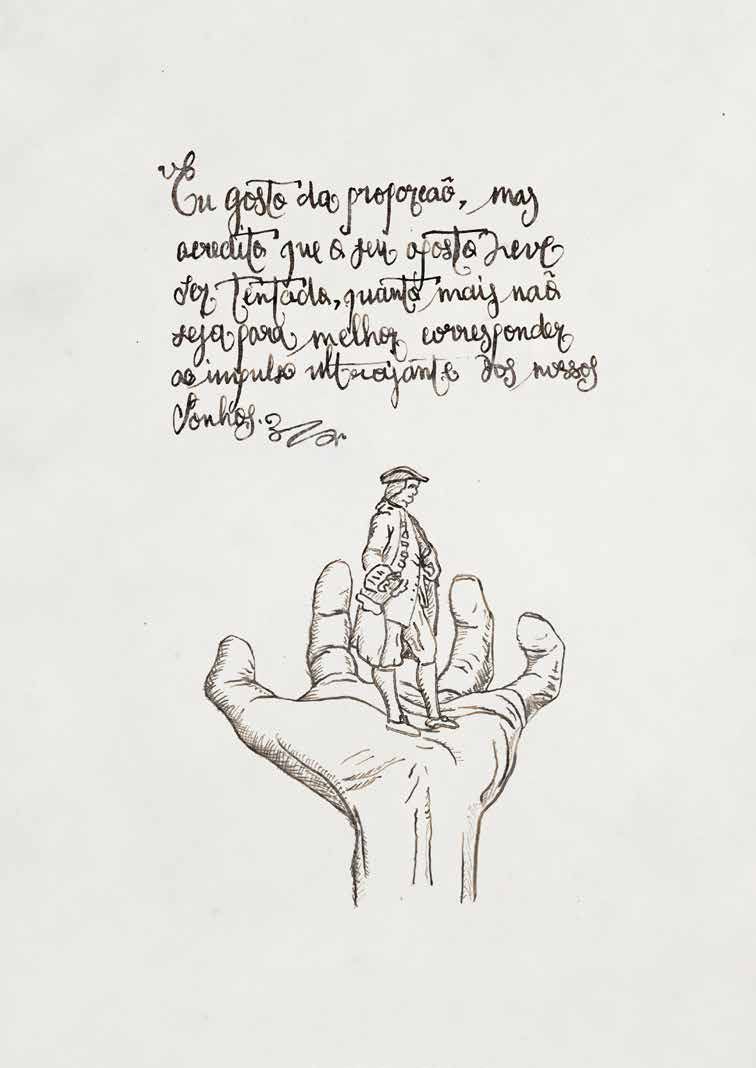 Eu gosto da proporcaõ, mas
acredito que o seu oposto deve
ser tentado, quanto mais naõ
seja para melhor corresponder
ao impulso ultrajante dos nossos
Sonhos.